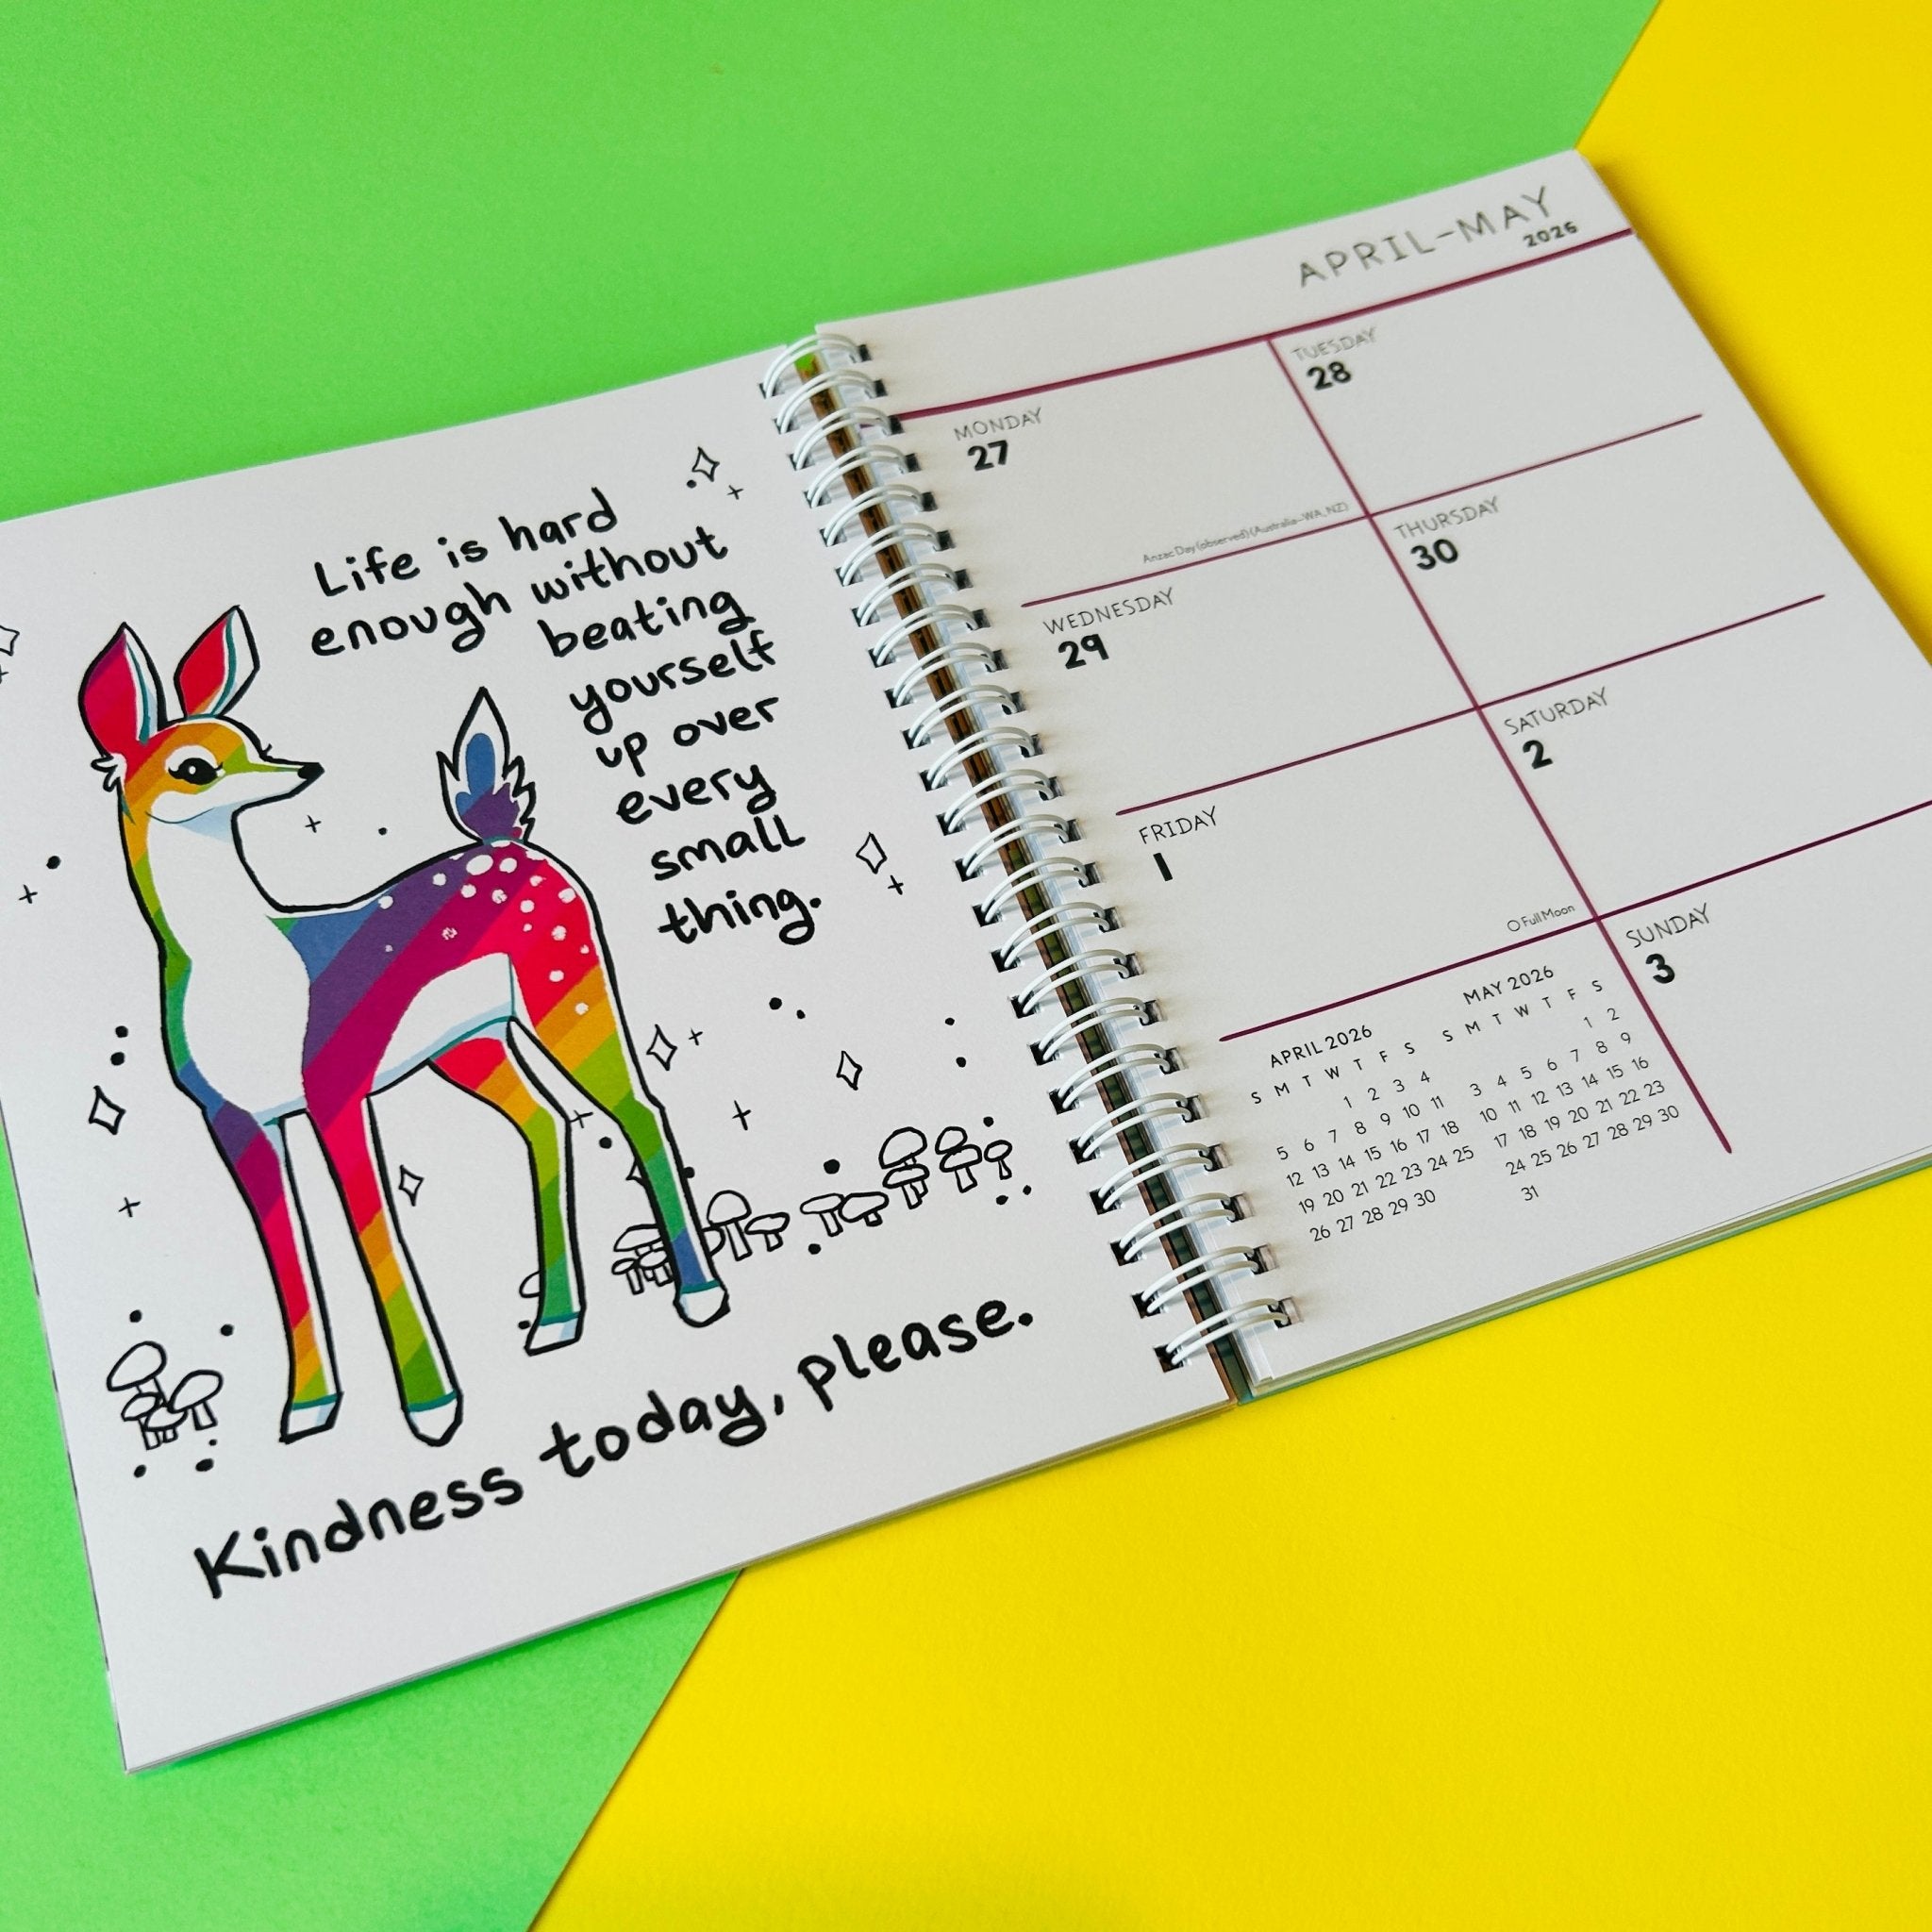 Life is hard
enough without
beating
yourself
up over
every
small
thing.
Kindness today, please.
APRIL-MAY
2026
MONDAY
27
Anzac Day (observed) (Australia–WA, NZ)
TUESDAY
28
WEDNESDAY
29
THURSDAY
30
FRIDAY
1
Full Moon
SATURDAY
2
SUNDAY
3
APRIL 2026
S M T W T F S
1 2 3 4
5 6 7 8 9 10 11
12 13 14 15 16 17 18
19 20 21 22 23 24 25
26 27 28 29 30
MAY 2026
S M T W T F S
1 2
3 4 5 6 7 8 9
10 11 12 13 14 15 16
17 18 19 20 21 22 23
24 25 26 27 28 29 30
31